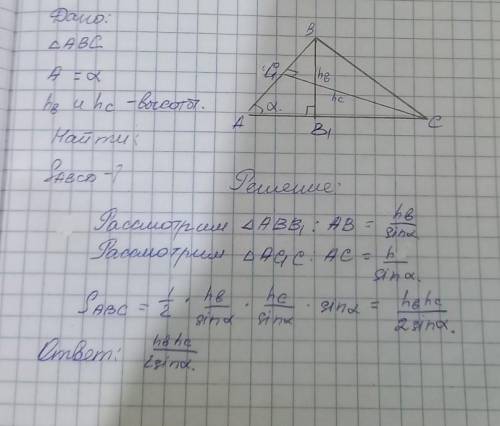 Дано:
△ABC
A = α
hв и hc - высоты.
Найти:
SABCD - ?
B
C1
hв
hc
α
A
B1
C
Решение:
Рассмотрим △ABB1 : AB = hв/sinα
Рассмотрим △AC1C : AC = h/sinα.
SABC = 1/2 · hв/sinα · hc/sinα · sinα = hвhc/2sinα.
Ответ: hвhc/2sinα.